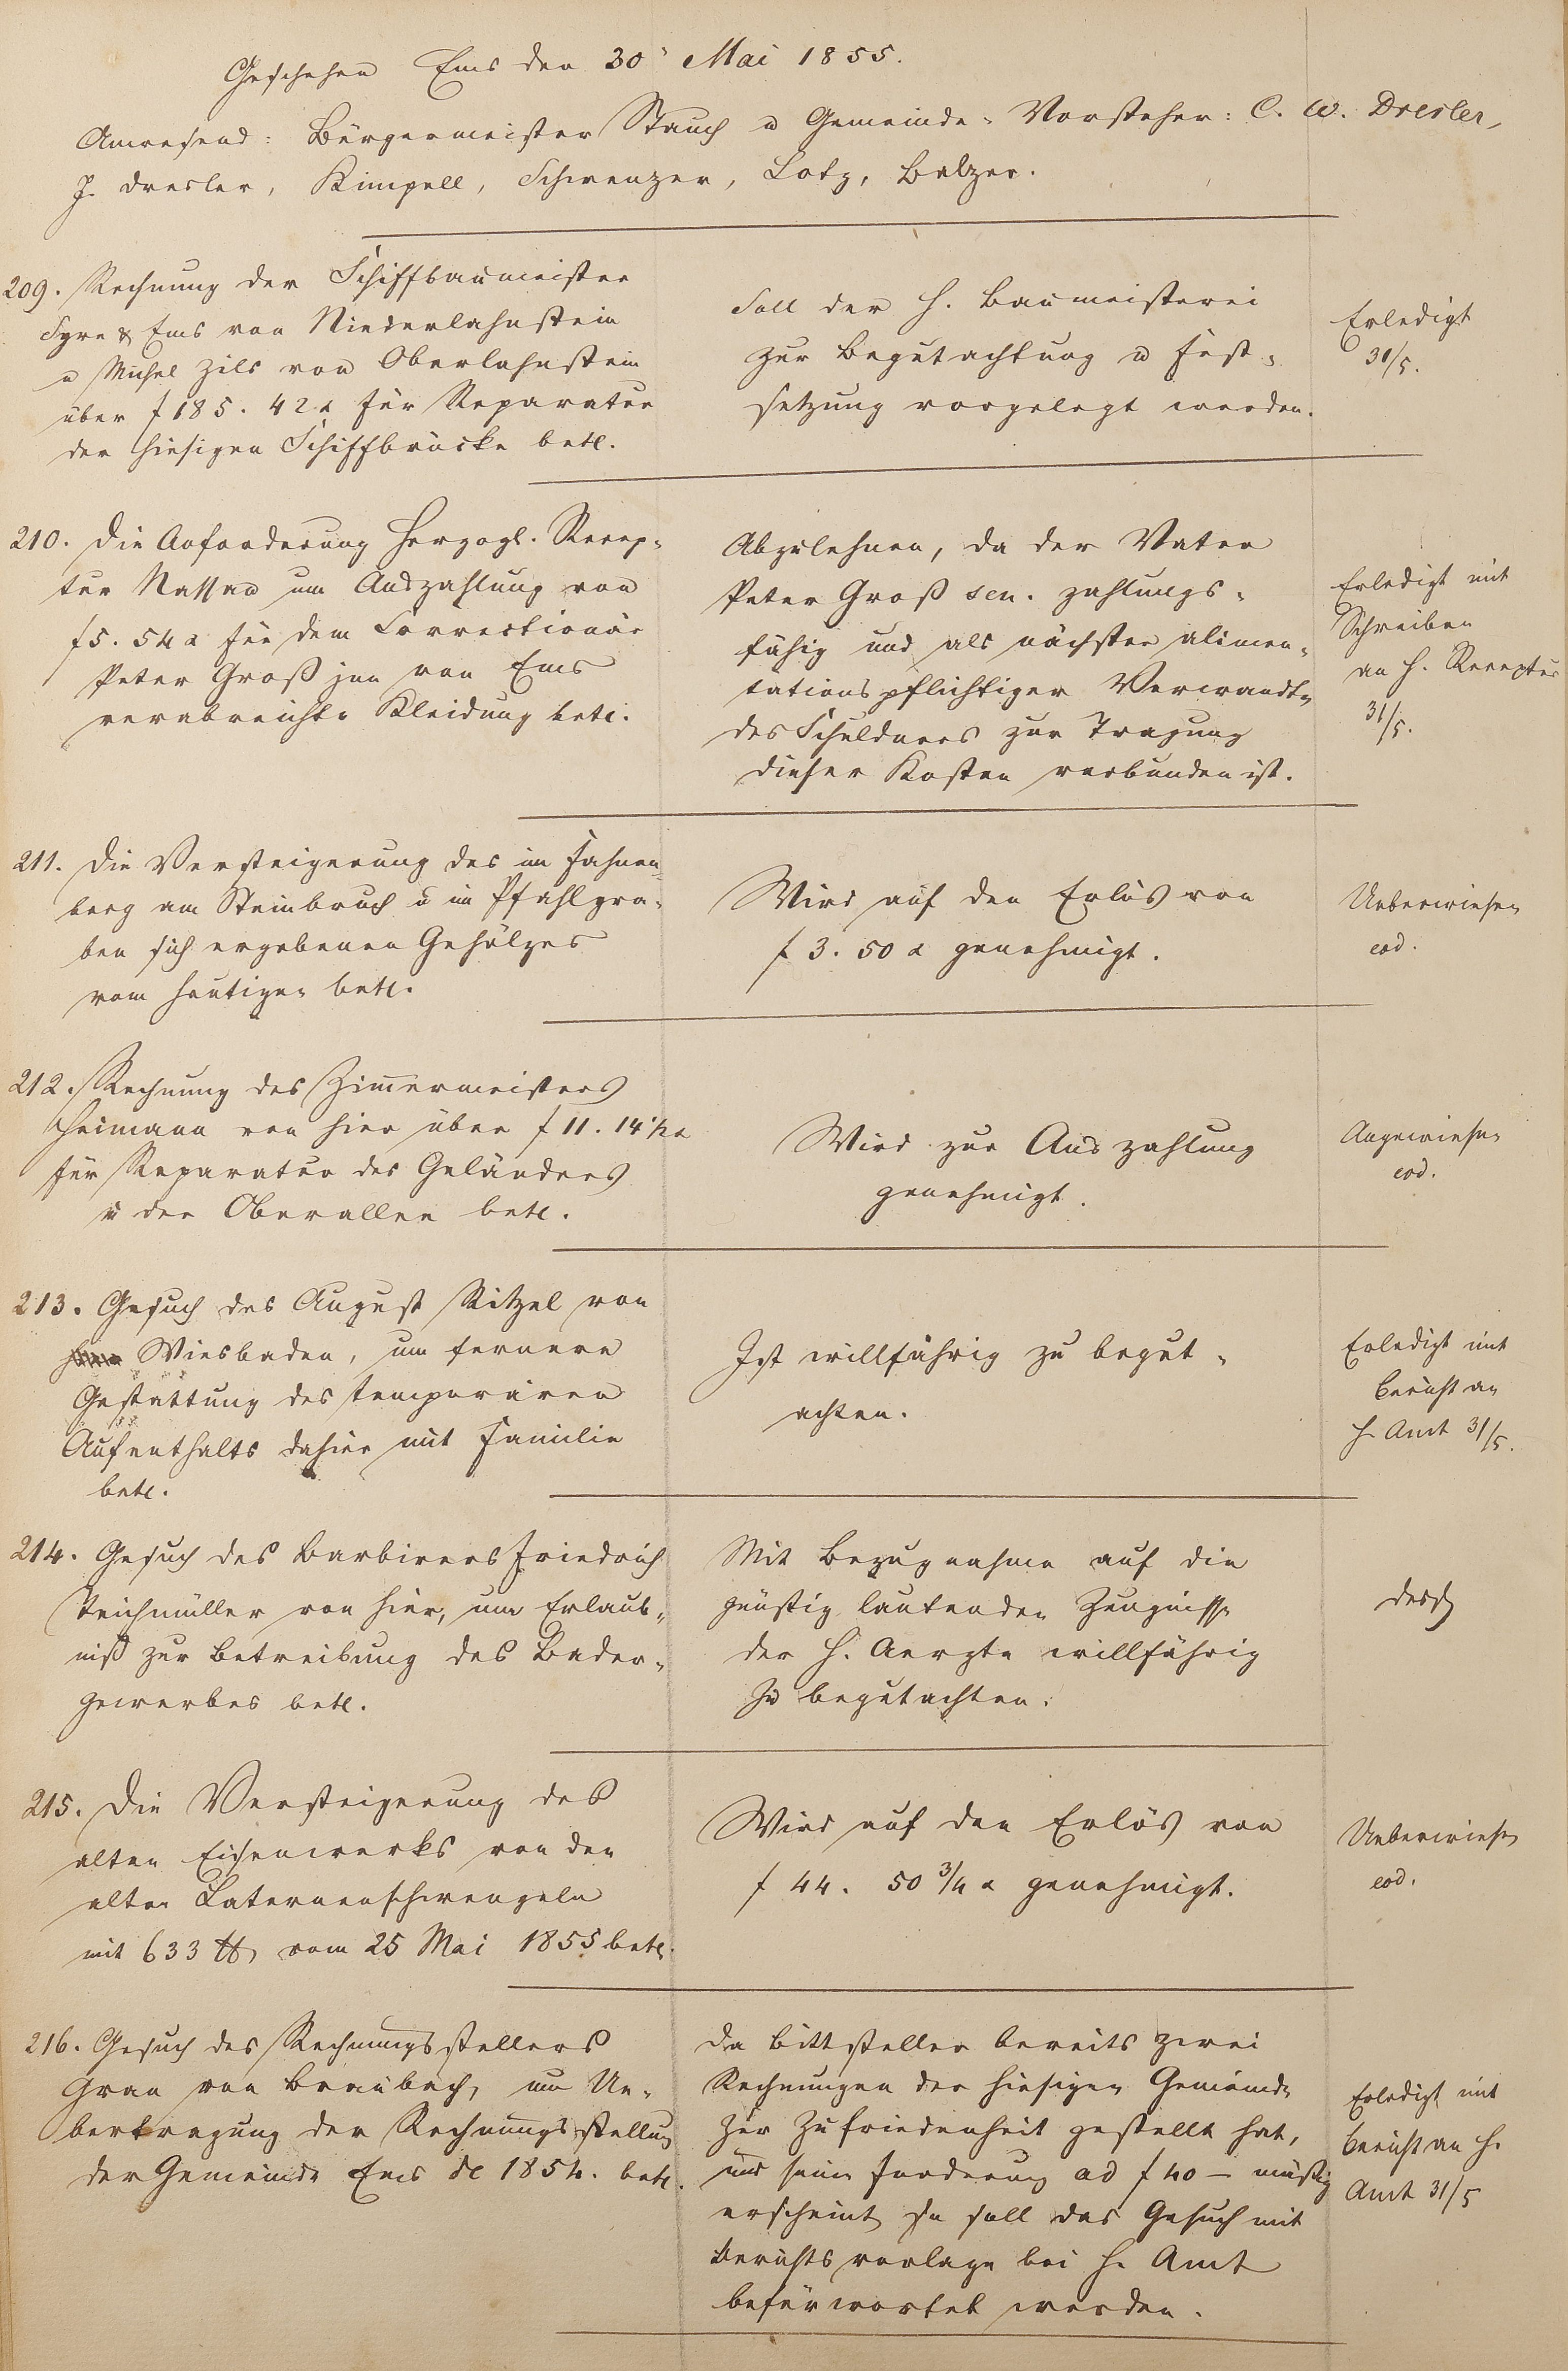 Geschehen Ems den 30' Mai 1855.
Anwesend: Bürgermeister Stauch u Gemeinde-Vorsteher: C. W. Dresler,
J. Dresler, Kimpell, Schwenzer, Lotz, Balzer.
209. Rechnung der Schiffbaumeister
& Ems von Niederlahnstein
u Michel Zils von Oberlahnstein
über f 185. 42 x für Reparatur
der hiesigen Schiffbrücke betr.
Soll der H. Baumeisterei
zur Begutachtung u Fest-
setzung vorgelegt werden.
Erledigt
31/5.
210. Die Anforderung Herzogl. Recep-
tur Nassau um Auszahlung von
f 5. 54 x für dem Correctionär
Peter Groß jun von Ems
verabreichte Kleidung betr.
Abzulehnen, da der Vater
Peter Groß sen. zahlungs-
fähig und als nächster alimen-
tationspflichtiger Verwandte
des Schuldners zur Tragung
dieser Kosten verbunden ist.
Erledigt mit
Schreiben
an H. Receptur
31/5.
211. Die Versteigerung des im Fahnen-
berg am Steinbruch u im Pfahlgra-
ben sich ergebenen Gehölzes
vom heutigen betr.
Wird auf den Erlös von
f 3. 50 x genehmigt.
Ueberwiesen
eod.
212. Rechnung des Zimmermeisters
Heimann von hier über f 11. 14 1/2 x
für Reparatur des Geländers
in der Oberallee betr.
Wird zur Auszahlung
genehmigt.
Angewiesen
eod.
213. Gesuch des August Ritzel von
Wiesbaden, um fernere
Gestattung des temporären
Aufenthalts dahier mit Familie
betr.
Ist willfährig zu begut-
achten.
Erledigt mit
Bericht an
H. Amt 31/5.
214. Gesuch des Barbirers Friedrich
Teichmüller von hier, um Erlaub-
niß zur Betreibung des Bader-
gewerbes betr.
Mit Bezugnahme auf die
günstig lautenden Zeugnisse
der H. Aerzte willfährig
zu begutachten.
desgl
215. Die Versteigerung des
alten Eisenwerks von den
alten Laternenschwengeln
mit 633 ℔ vom 25 Mai 1855 betr.
Wird auf den Erlös von
f 44. 50 3/4 x genehmigt.
Ueberwiesen
eod.
216. Gesuch des Rechnungsstellers
Grau von Braubach, um Ue-
bertragung der Rechnungsstellung
der Gemeinde Ems de 1854. betr.
Da Bittsteller bereits zwei
Rechnungen der hiesigen Gemeinde
zur Zufriedenheit gestellt hat,
und seine Forderung ad f 40 – mäßig
erscheint so soll das Gesuch mit
Berichtsvorlage bei H. Amt
befürwortet werden.
Erledigt mit
Bericht an H.
Amt 31/5